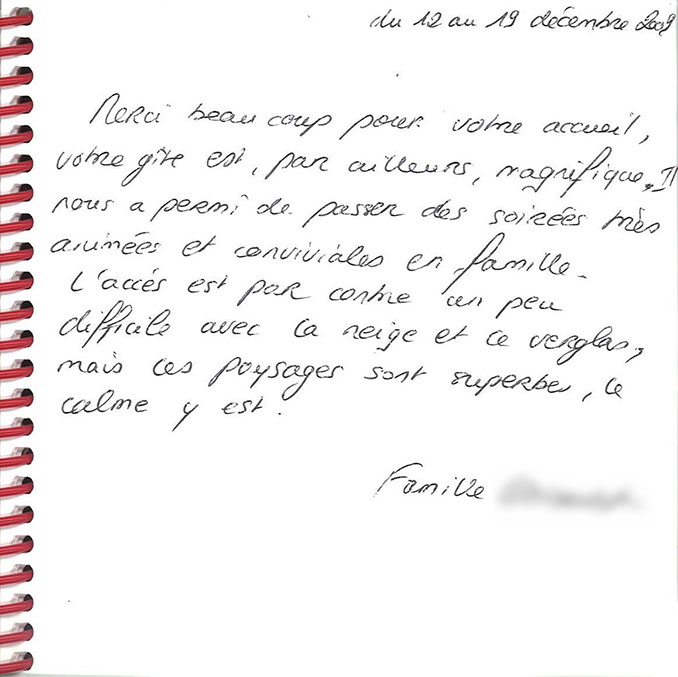 du 12 au 19 décembre 2009
Merci beaucoup pour votre accueil,
votre gîte est, par ailleurs, magnifique, Il
nous a permi de passer des soirées très
animées et conviviales en famille.
L'accés est par contre un peu
difficile avec la neige et le verglas,
mais les paysages sont superbes, le
calme y est.
Famille